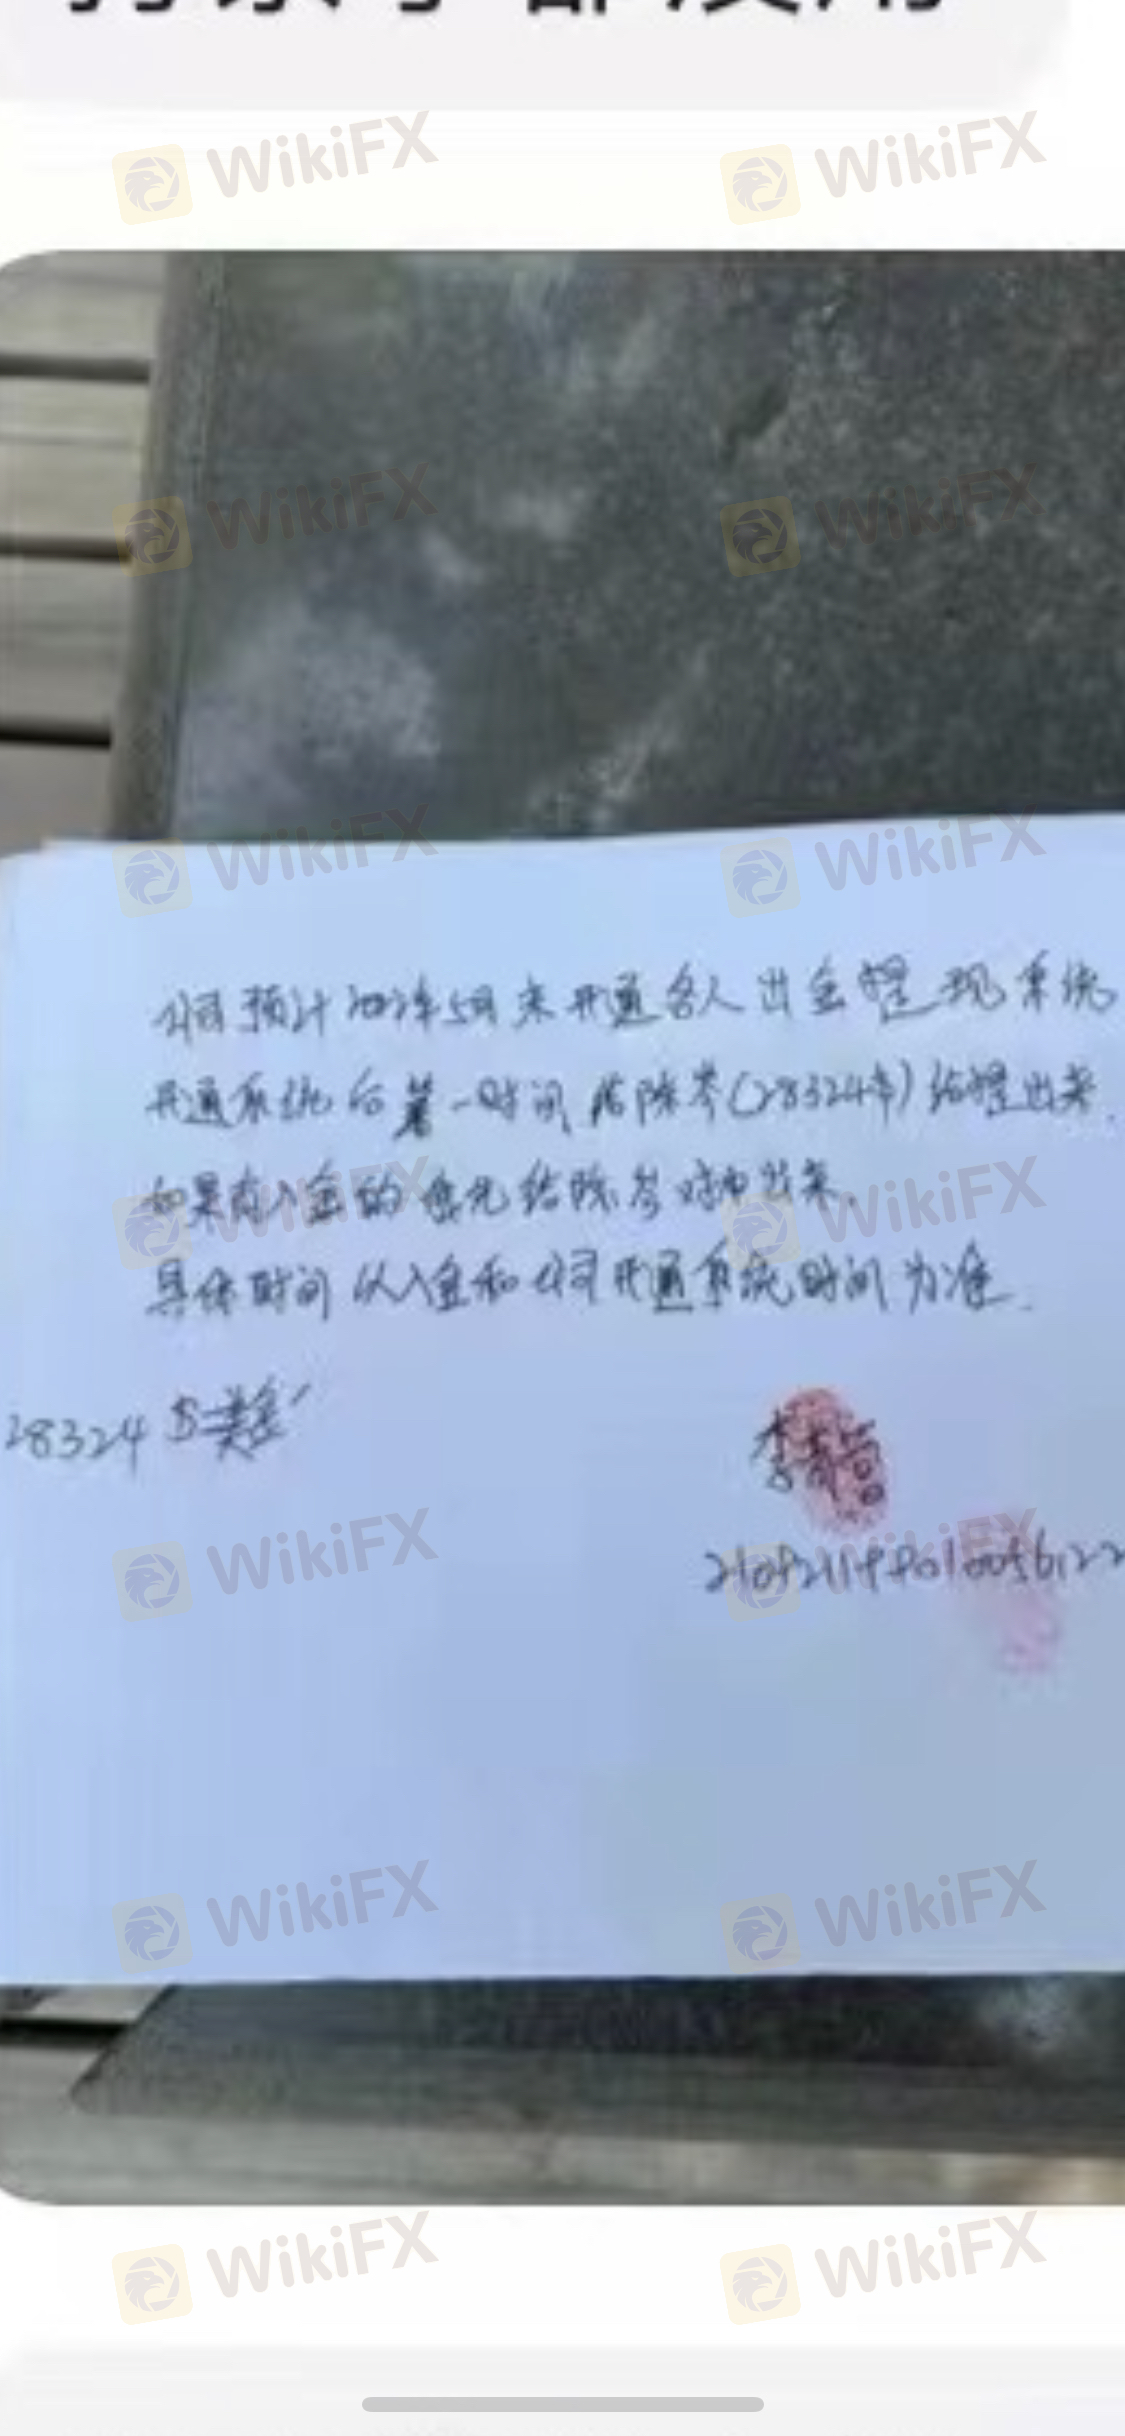 WikiFX WikiFX
WikiFX WikiFX
WikiFX WikiFX
公司预计年5月末开通客人出金提现系统
开通系统后第一时间给陈岑(28324市)给提出来.
WikiFX WikiFX
如果有入金的优先给陈岑对冲出来.
具体时间以入金和公司开通系统时间为准.
28324 $美金
WikiFX WikiFX
WikiFX WikiFX
WikiFX WikiFX